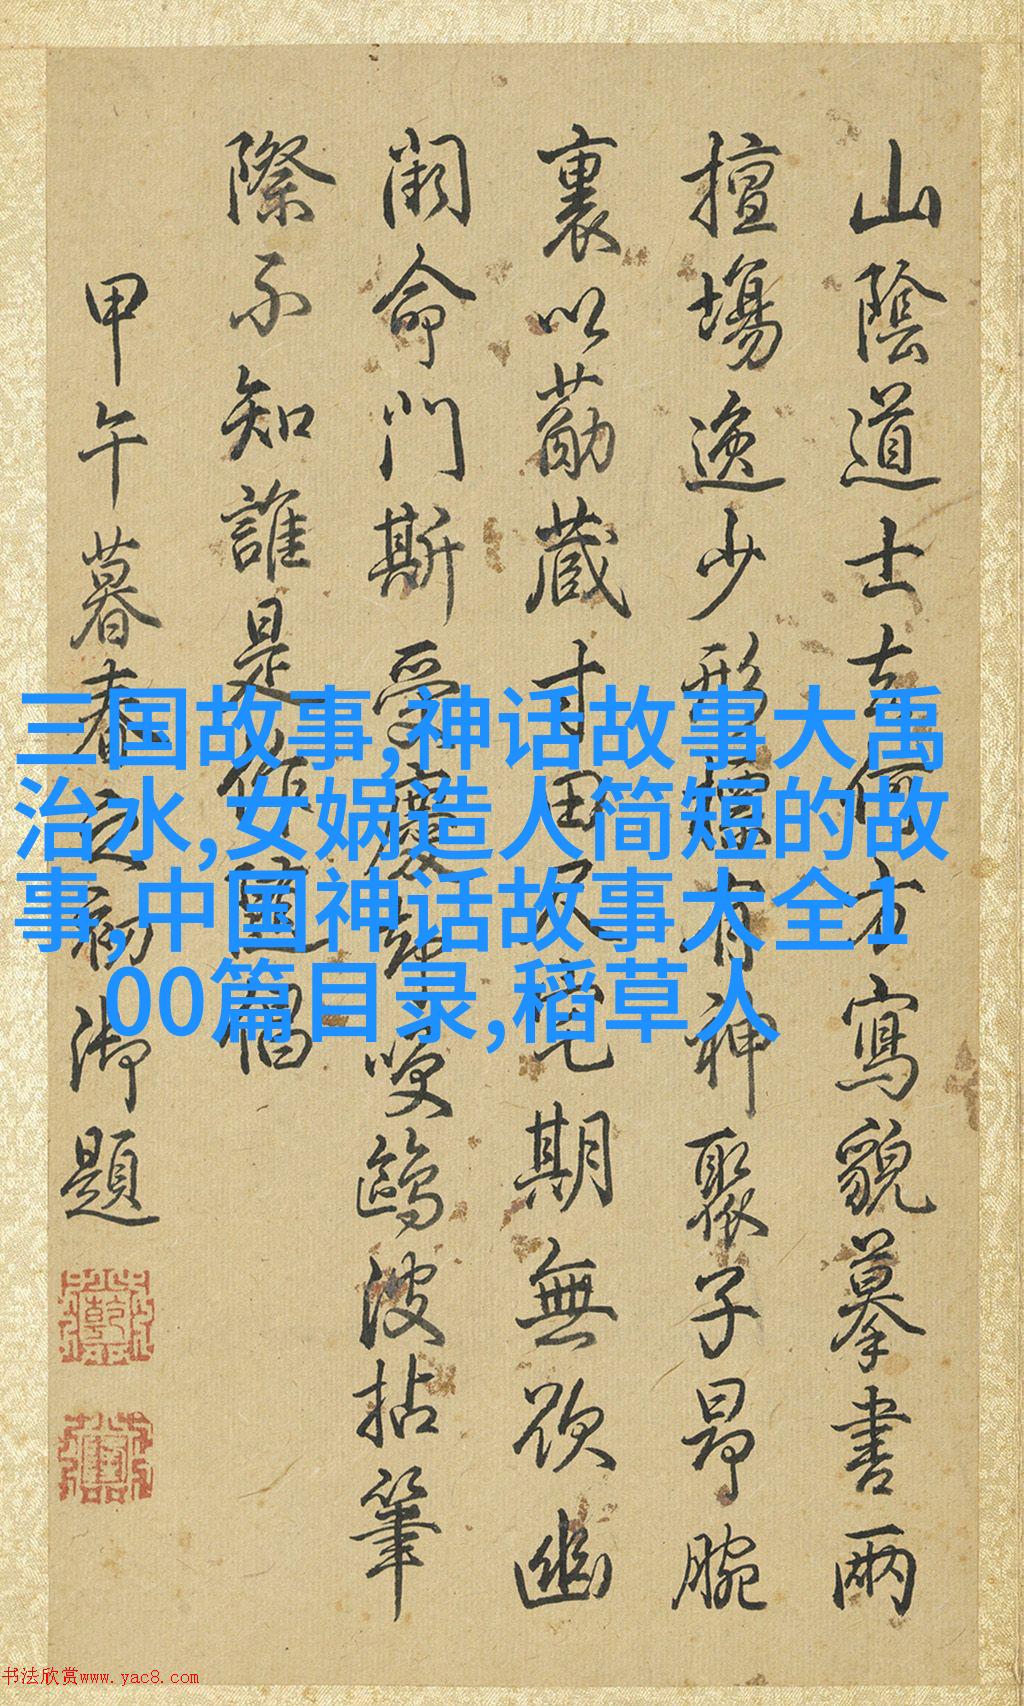 山陰道士去何方寫貌摹書兩
擅場逸少形有神聚子昂腕
裏以藏寸田尺宅期無欲幽
闕命門斯受慶却咲鷗波拈筆
際不知誰是作倡
甲午暮春之初御題
三国故事,神话故事大禹
治水,女娲造人简短的故
事,中国神话故事大全1
00篇目录,稻草人
书法欣赏www.yac8.com